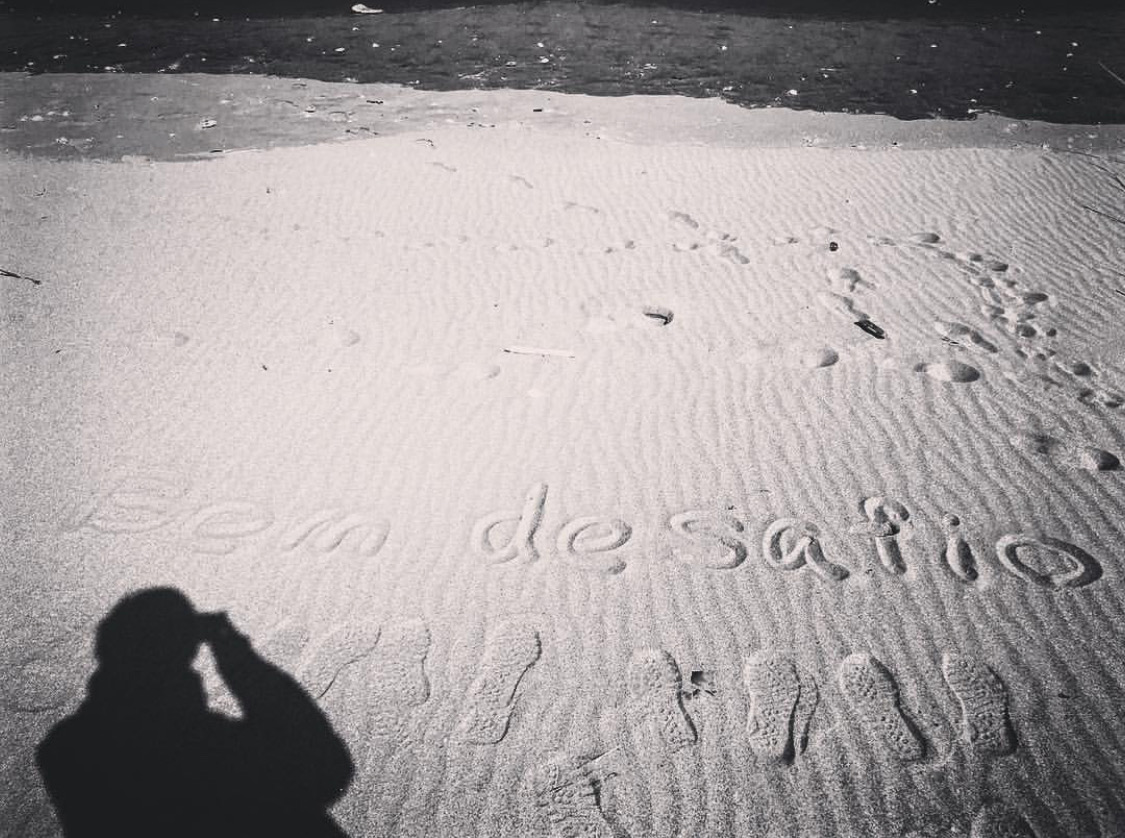 Bem desafio